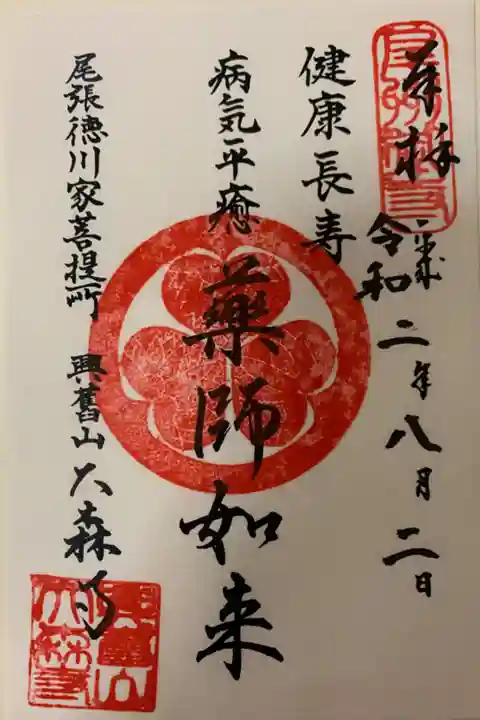 奉拝
令和二年八月二日
健康長寿
病気平癒
藥師如来
尾張徳川家菩提所 興舊山大森寺